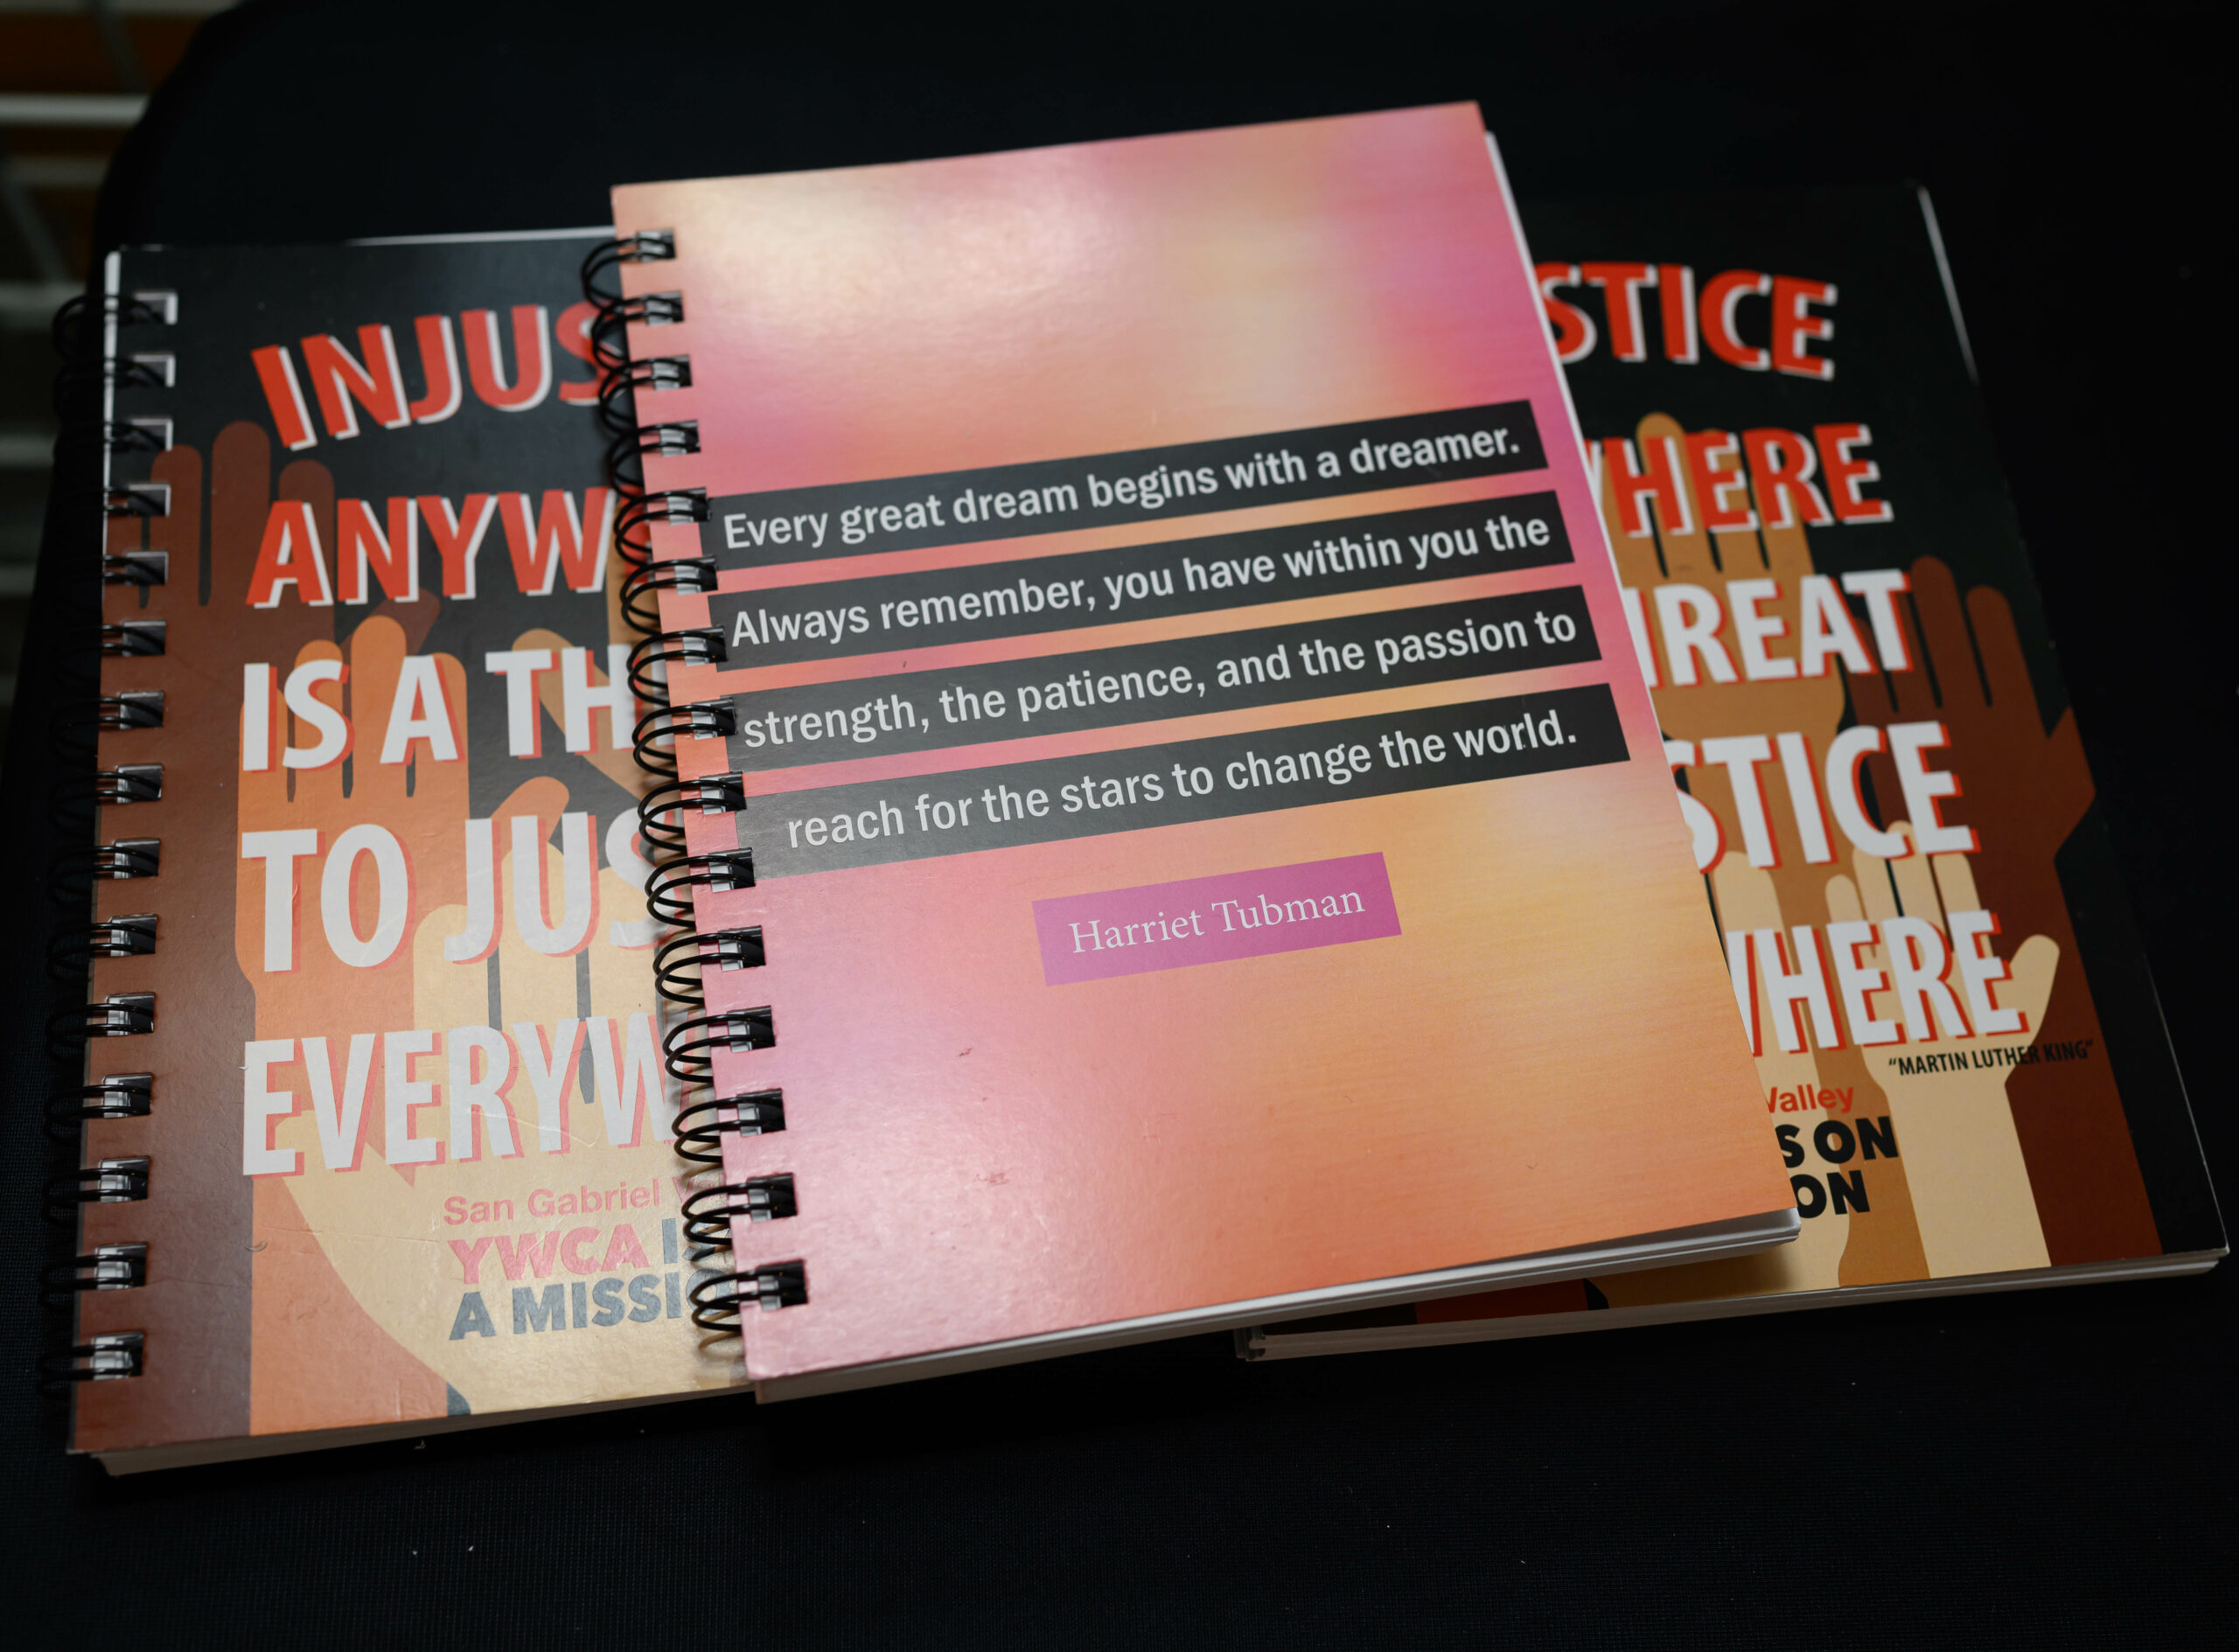 INJUS
ANYW
IS A TH
TO JUS
EVERYW
San Gabriel V
YWCA IS
A MISSIO
Every great dream begins with a dreamer.
Always remember, you have within you the
strength, the patience, and the passion to
reach for the stars to change the world.
Harriet Tubman
STICE
HERE
REAT
STICE
HERE
"MARTIN LUTHER KING"
Valley
S ON
ON